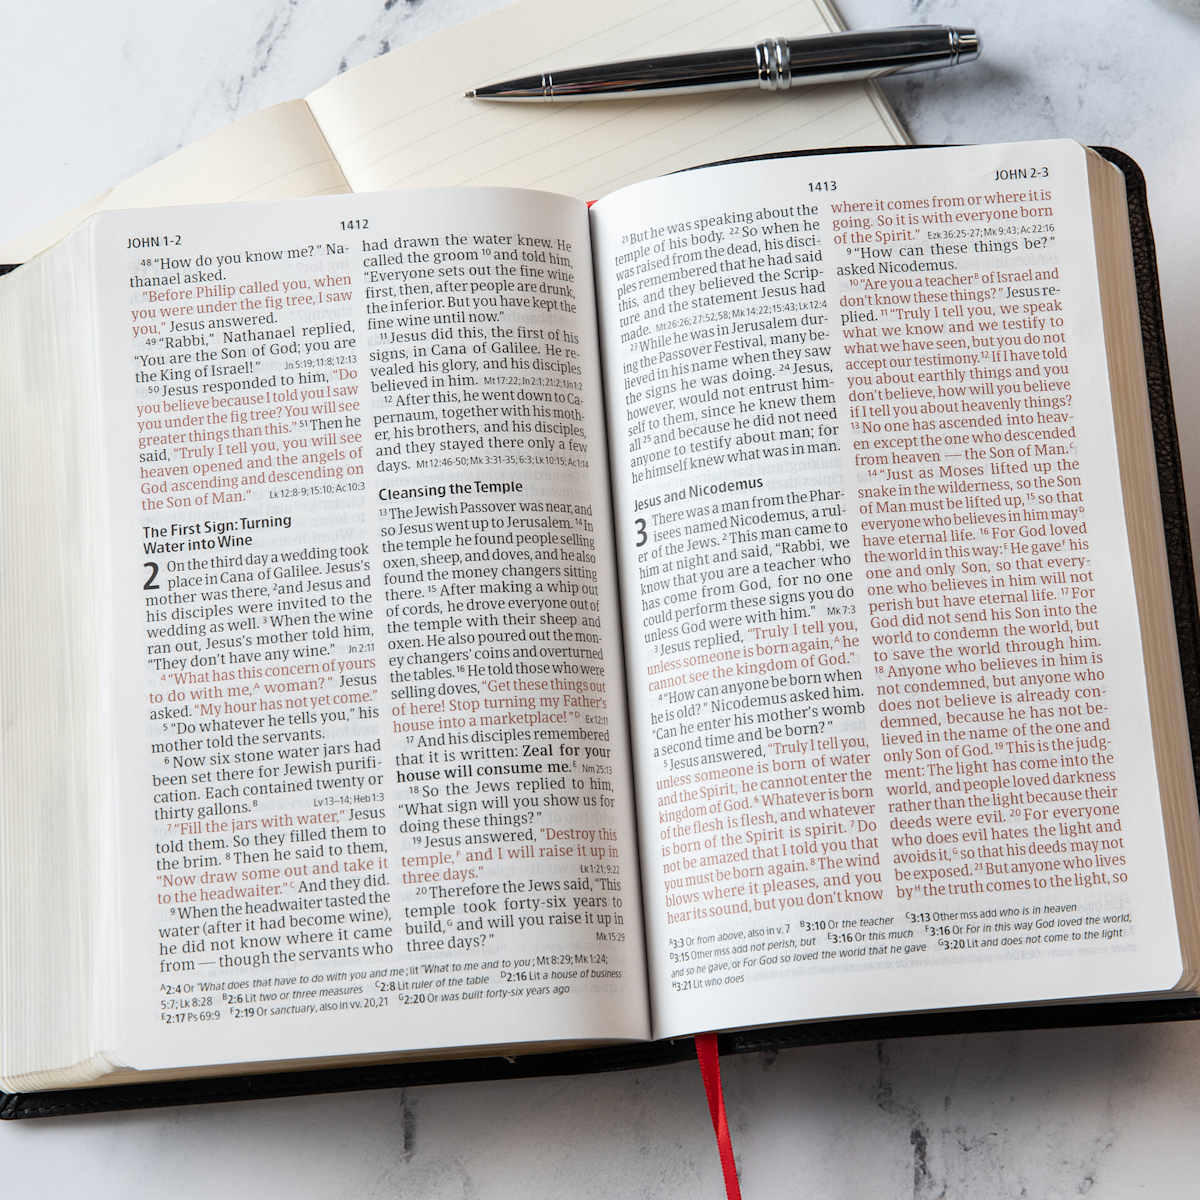 JOHN 1-2
1412
48 “How do you know me?” Na-
thanael asked.
“Before Philip called you, when
you were under the fig tree, I saw
you,” Jesus answered.
49 “Rabbi,” Nathanael replied,
“You are the Son of God; you are
the King of Israel!” Jn 5:19; 11:8; 12:13
50 Jesus responded to him, “Do
you believe because I told you I saw
you under the fig tree? You will see
greater things than this.” 51 Then he
said, “Truly I tell you, you will see
heaven opened and the angels of
God ascending and descending on
the Son of Man.” Lk 12:8-9; 15:10; Ac 10:3
The First Sign: Turning
Water into Wine
2 On the third day a wedding took
place in Cana of Galilee. Jesus’s
mother was there, 2 and Jesus and
his disciples were invited to the
wedding as well. 3 When the wine
ran out, Jesus’s mother told him,
“They don’t have any wine.” Jn 2:11
4 “What has this concern of yours
to do with me,A woman?” Jesus
asked. “My hour has not yet come.”
5 “Do whatever he tells you,” his
mother told the servants.
6 Now six stone water jars had
been set there for Jewish purifi-
cation. Each contained twenty or
thirty gallons.B Lv 13–14; Heb 1:3
7 “Fill the jars with water,” Jesus
told them. So they filled them to
the brim. 8 Then he said to them,
“Now draw some out and take it
to the headwaiter.”C And they did.
9 When the headwaiter tasted the
water (after it had become wine),
he did not know where it came
from — though the servants who
had drawn the water knew. He
called the groom 10 and told him,
“Everyone sets out the fine wine
first, then, after people are drunk,
the inferior. But you have kept the
fine wine until now.”
11 Jesus did this, the first of his
signs, in Cana of Galilee. He re-
vealed his glory, and his disciples
believed in him. Mt 17:22; Jn 2:1; 21:2; 1Jn 1:2
12 After this, he went down to Ca-
pernaum, together with his moth-
er, his brothers, and his disciples,
and they stayed there only a few
days. Mt 12:46-50; Mk 3:31-35; 6:3; Lk 10:15; Ac 1:14
Cleansing the Temple
13 The Jewish Passover was near, and
so Jesus went up to Jerusalem. 14 In
the temple he found people selling
oxen, sheep, and doves, and he also
found the money changers sitting
there. 15 After making a whip out
of cords, he drove everyone out of
the temple with their sheep and
oxen. He also poured out the mon-
ey changers’ coins and overturned
the tables. 16 He told those who were
selling doves, “Get these things out
of here! Stop turning my Father’s
house into a marketplace!”D Ex 12:11
17 And his disciples remembered
that it is written: Zeal for your
house will consume me.E Nm 25:13
18 So the Jews replied to him,
“What sign will you show us for
doing these things?”
19 Jesus answered, “Destroy this
temple,F and I will raise it up in
three days.” Lk 1:21; 9:22
20 Therefore the Jews said, “This
temple took forty-six years to
build,G and will you raise it up in
three days?” Mk 15:29
A 2:4 Or “What does that have to do with you and me; lit “What to me and to you; Mt 8:29; Mk 1:24;
5:7; Lk 8:28 B 2:6 Lit two or three measures C 2:8 Lit ruler of the table D 2:16 Lit a house of business
E 2:17 Ps 69:9 F 2:19 Or sanctuary, also in vv. 20,21 G 2:20 Or was built forty-six years ago
1413
JOHN 2-3
21 But he was speaking about the
temple of his body. 22 So when he
was raised from the dead, his disci-
ples remembered that he had said
this, and they believed the Scrip-
ture and the statement Jesus had
made. Mt 26:26; 27:52,58; Mk 14:22; 15:43; Lk 12:4
23 While he was in Jerusalem dur-
ing the Passover Festival, many be-
lieved in his name when they saw
the signs he was doing. 24 Jesus,
however, would not entrust him-
self to them, since he knew them
all 25 and because he did not need
anyone to testify about man; for
he himself knew what was in man.
Jesus and Nicodemus
3 There was a man from the Phar-
isees named Nicodemus, a rul-
er of the Jews. 2 This man came to
him at night and said, “Rabbi, we
know that you are a teacher who
has come from God, for no one
could perform these signs you do
unless God were with him.” Mk 7:3
3 Jesus replied, “Truly I tell you,
unless someone is born again,A he
cannot see the kingdom of God.”
4 “How can anyone be born when
he is old?” Nicodemus asked him.
“Can he enter his mother’s womb
a second time and be born?”
5 Jesus answered, “Truly I tell you,
unless someone is born of water
and the Spirit, he cannot enter the
kingdom of God. 6 Whatever is born
of the flesh is flesh, and whatever
is born of the Spirit is spirit. 7 Do
not be amazed that I told you that
you must be born again. 8 The wind
blows where it pleases, and you
hear its sound, but you don’t know
where it comes from or where it is
going. So it is with everyone born
of the Spirit.” Ezk 36:25-27; Mk 9:43; Ac 22:16
9 “How can these things be?”
asked Nicodemus.
10 “Are you a teacherB of Israel and
don’t know these things?” Jesus re-
plied. 11 “Truly I tell you, we speak
what we know and we testify to
what we have seen, but you do not
accept our testimony. 12 If I have told
you about earthly things and you
don’t believe, how will you believe
if I tell you about heavenly things?
13 No one has ascended into heav-
en except the one who descended
from heaven — the Son of Man.C
14 “Just as Moses lifted up the
snake in the wilderness, so the Son
of Man must be lifted up, 15 so that
everyone who believes in him mayD
have eternal life. 16 For God loved
the world in this way:E He gaveF his
one and only Son, so that every-
one who believes in him will not
perish but have eternal life. 17 For
God did not send his Son into the
world to condemn the world, but
to save the world through him.
18 Anyone who believes in him is
not condemned, but anyone who
does not believe is already con-
demned, because he has not be-
lieved in the name of the one and
only Son of God. 19 This is the judg-
ment: The light has come into the
world, and people loved darkness
rather than the light because their
deeds were evil. 20 For everyone
who does evil hates the light and
avoids it,G so that his deeds may not
be exposed. 21 But anyone who lives
byH the truth comes to the light, so
A 3:3 Or from above, also in v. 7 B 3:10 Or the teacher C 3:13 Other mss add who is in heaven
D 3:15 Other mss add not perish, but E 3:16 Or this much F 3:16 Or For in this way God loved the world,
and so he gave, or For God so loved the world that he gave G 3:20 Lit and does not come to the light
H 3:21 Lit who does